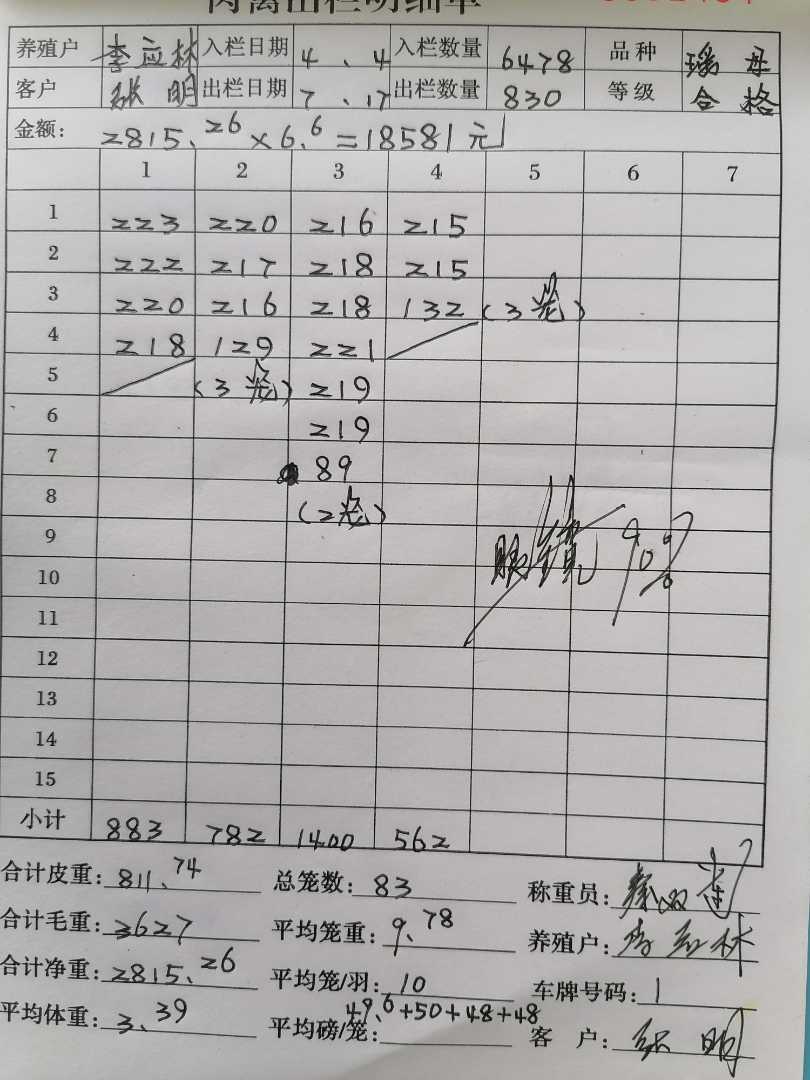 肉禽出栏明细单
养殖户 李应林 入栏日期 4、4 入栏数量 6478 品种 瑶母
客户 张明 出栏日期 7、17 出栏数量 830 等级 合格
金额: 2815、26×6、6=18581元
1 2 3 4 5 6 7
1 223 220 216 215
2 222 217 218 215
3 220 216 218 132 (3笼)
4 218 129 221
5 (3笼) 219
6 219
7 89
8 (2笼)
9 眼镜 90%
10
11
12
13
14
15
小计 883 782 1400 562
合计皮重: 811、74 总笼数: 83 称重员:
合计毛重: 3627 平均笼重: 9、78 养殖户: 李应林
合计净重: 2815、26 平均笼/羽: 10 车牌号码: 1
平均体重: 3、39 平均磅/笼: 49、6+50+48+48 客户: 张明